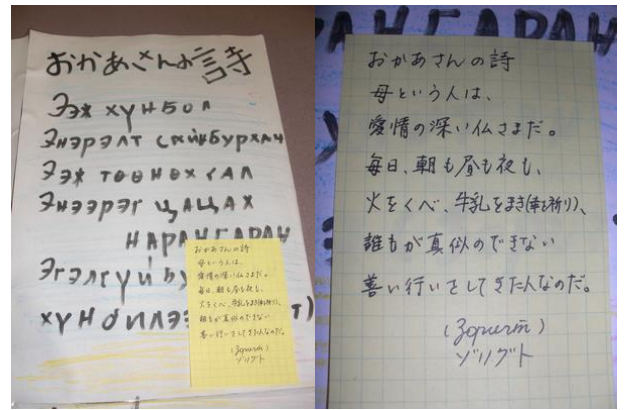 おかあさんの言詩
Ээж хүн бол
Энэрэлт сайн бурхан
Ээж төөнөх гал
Энээрэг цацах
НАРАН ГАРАН
Эгэлгүй
хүн
おかあさんの詩
母という人は、
愛情の深い仏さまだ。
毎日、朝も昼も夜も、
火をくべ、牛乳をまき(幸を祈り)、
誰もが真似のできない
善い行いをしてきた人なのだ。
(Зоригт)
ゾリグト
おかあさんの詩
母という人は、
愛情の深い仏さまだ。
毎日、朝も昼も夜も、
火をくべ、牛乳をまき(幸を祈り)、
誰もが真似のできない
善い行いをしてきた人なのだ。
(Зоригт)
ゾリグト